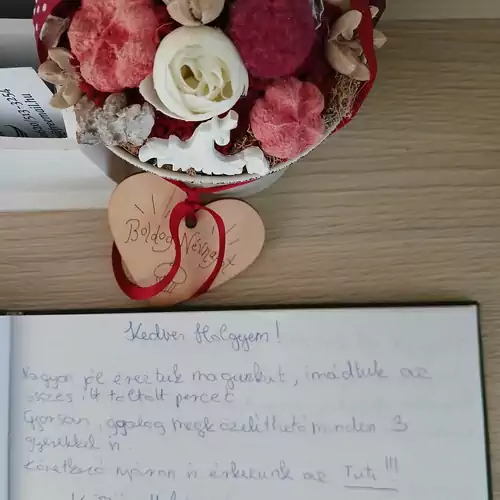 Boldog Névnapot
Kedves Hölgyem!
Nagyon jól éreztük magunkat, imádtuk az
összes itt töltött percet
Gyorsan, gyalog megközelíthető minden 3
gyerekkel is.
következő nyáron is érkezünk az Tuti!!!